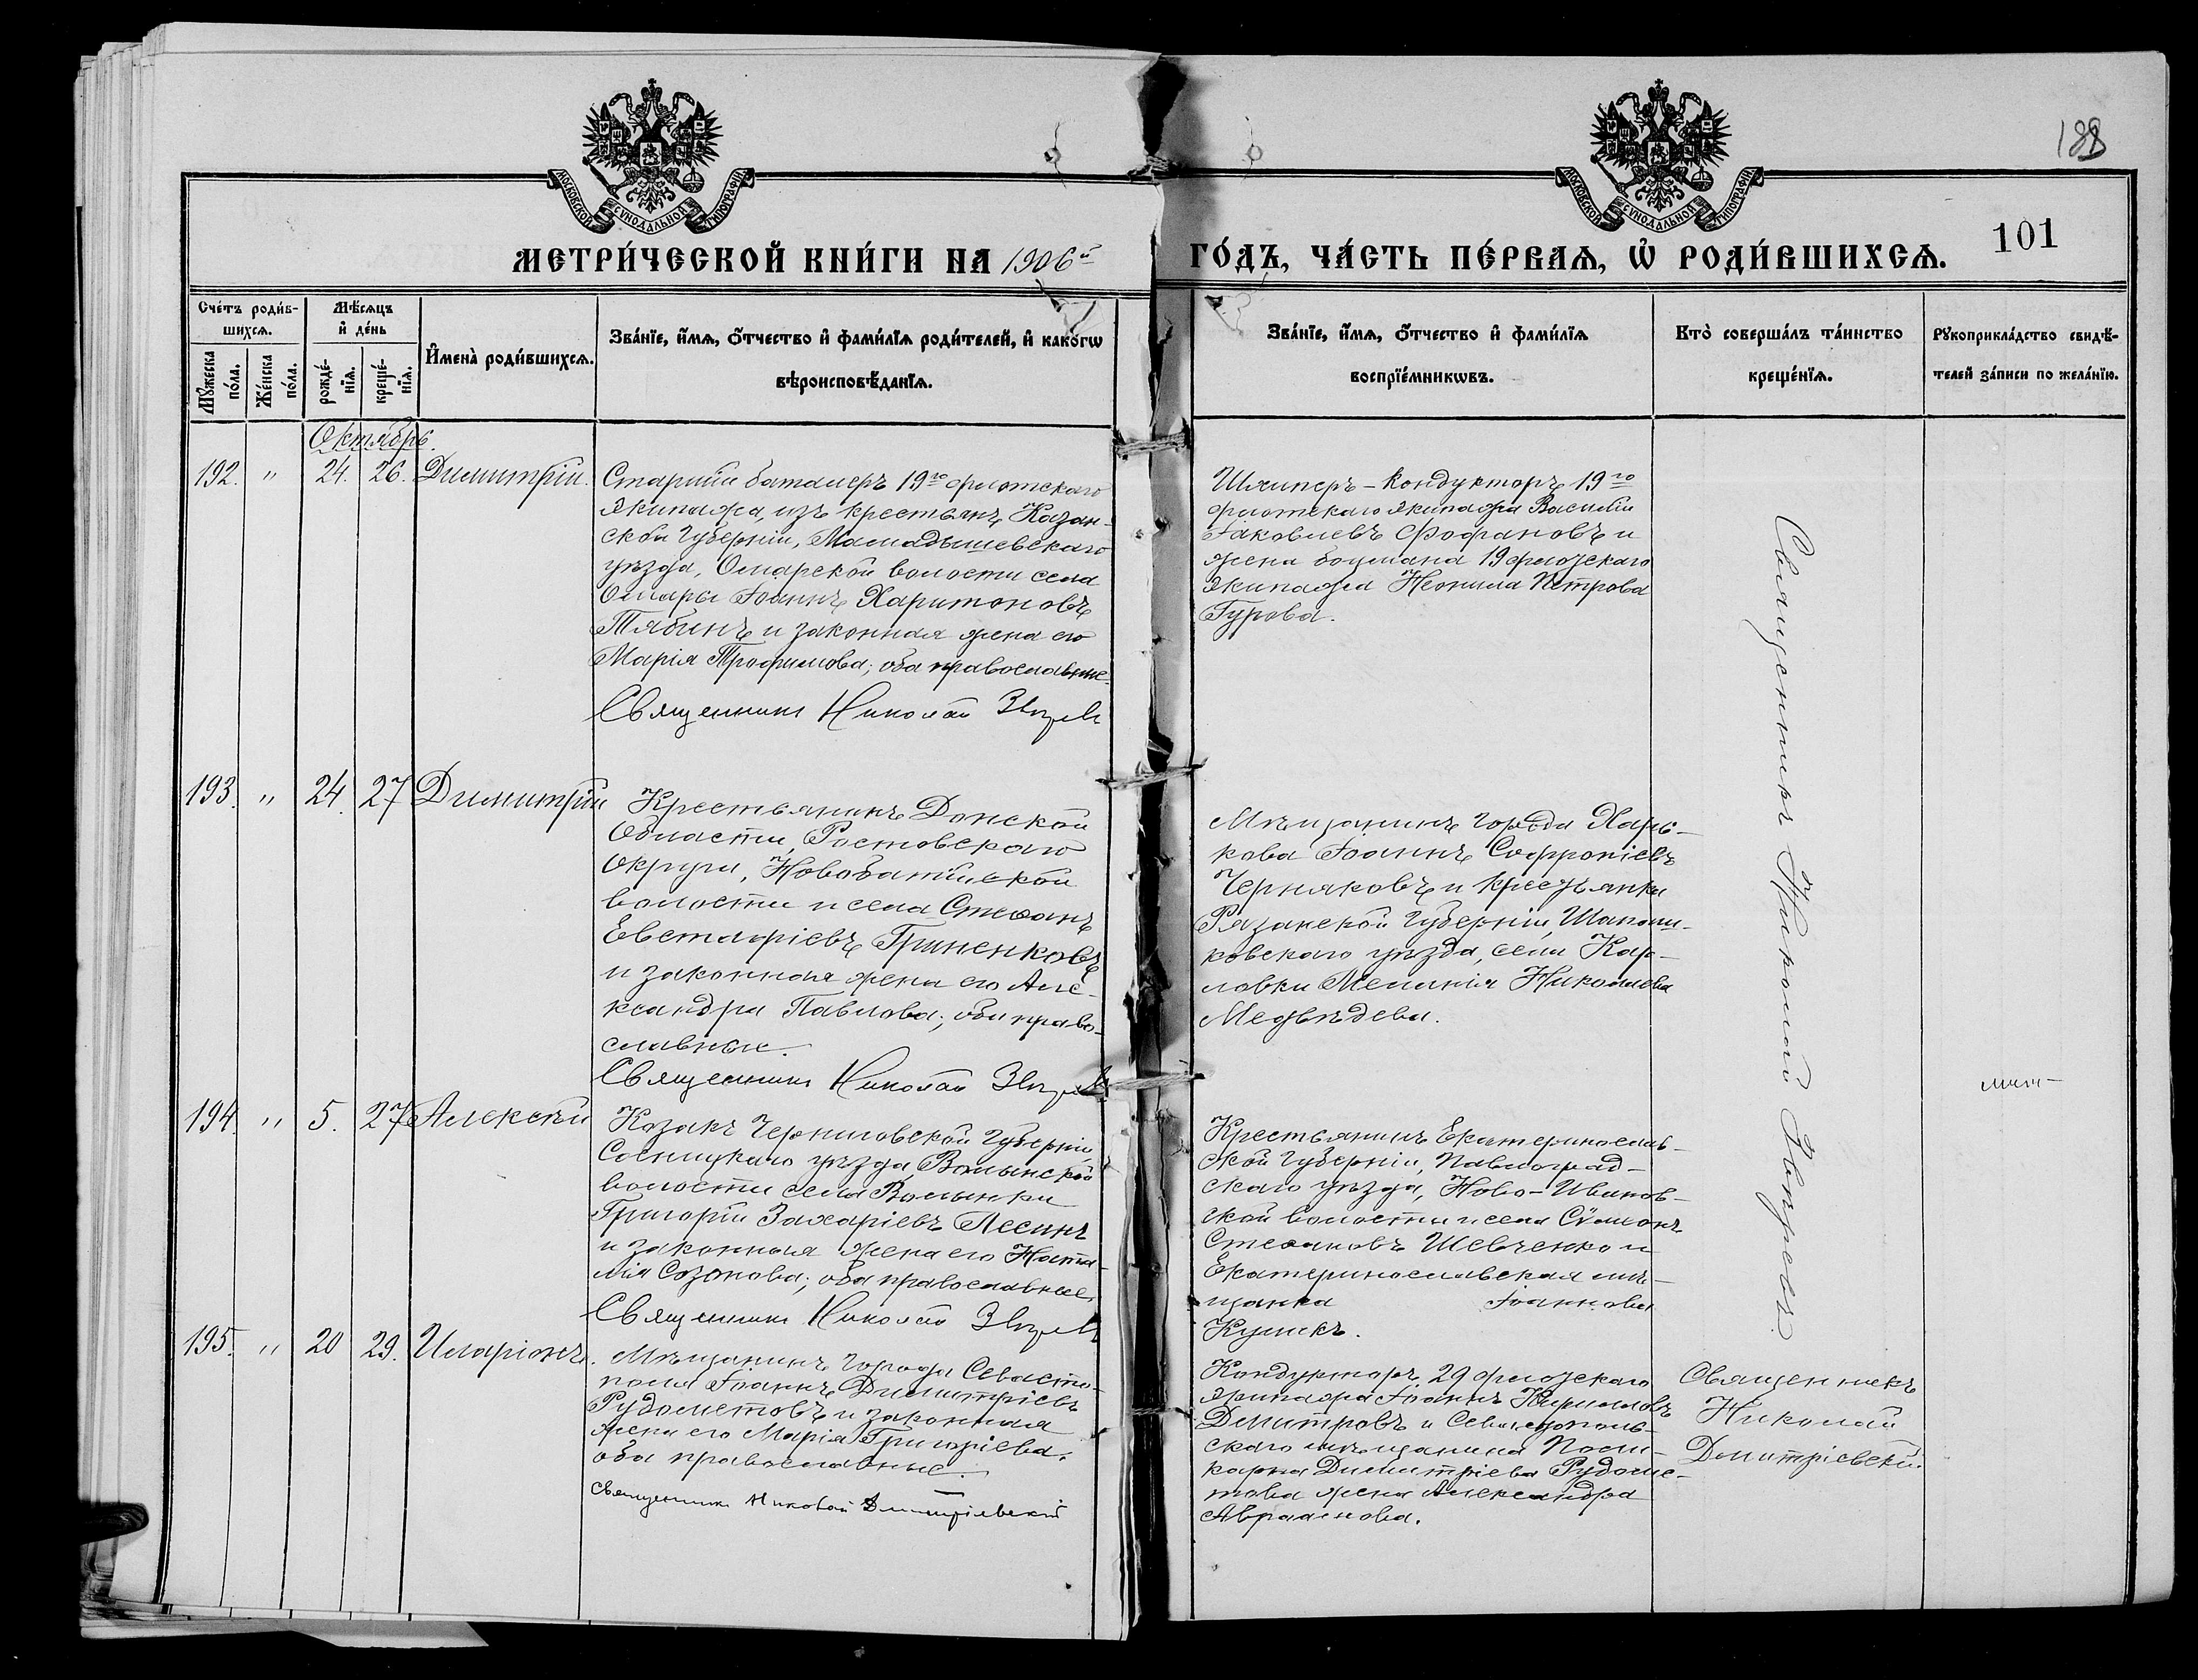 188
МОСКОВСКОЙ СѴНОДАЛЬНОЙ ТИПОГРАФІИ
МОСКОВСКОЙ СѴНОДАЛЬНОЙ ТИПОГРАФІИ
МЕТРИ́ЧЕСКОЙ КНИ́ГИ НА 1906й ГО́ДЪ, ЧА́СТЬ ПЕ́РВАѦ, Ѡ҆ РОДИ́ВШИХСѦ.
101
Сче́тъ роди́в-
шихсѧ.
Мꙋ́жеска по́ла.
Же́нска по́ла.
Мѣ́сѧцъ
и҆ де́нь
рожде́-
нїѧ.
креще́-
нїѧ.
И҆мена̀ роди́вшихсѧ.
Зва́нїе, и҆́мѧ, ѻ҆́тчество и҆ фами́лїѧ роди́телей, и҆ како́гѡ
вѣроисповѣ́данїѧ.
Зва́нїе, и҆́мѧ, ѻ҆́тчество и҆ фами́лїѧ
воспрїе́мникѡвъ.
Кто̀ соверша́лъ та́инство
креще́нїѧ.
Рꙋкоприкла́дство свидѣ́-
телей за́писи по жела́нїю.
Октябрь.
192. " 24. 26. Димитрій.
Старшій баталеръ 19го флотскаго
экипажа, изъ крестьянъ Казан-
ской губерніи, Мамадышевскаго
уѣзда, Омарской волости села
Омары Іоаннъ Харитоновъ
Тябинъ и законная жена его
Марія Трофимова; оба православные.
Священникъ Николай Звѣревъ
Шкиперъ-Кондукторъ 19го
флотскаго экипажа Василій
Іаковлевъ Фофановъ и
жена боцмана 19 флотскаго
экипажа Неонила Петрова
Гурова.
Священникъ Николай Звѣревъ.
193. " 24. 27 Димитрій
Крестьянинъ Донской
Области, Ростовскаго
Округа, Новобатайской
волости и села Стефанъ
Евстафіевъ Гриненковъ
и законная жена его Але-
ксандра Павлова; оба право-
славные.
Священникъ Николай Звѣревъ
Мѣщанинъ города Харь-
кова Іоаннъ Софроніевъ
Черняковъ и крестьянка
Рязанской губерніи,
ковскаго уѣзда, села Кар-
ловки Меланія Николаева
Медвѣдева.
194. " 5. 27 Алексѣй
Козакъ Черниговской губерніи,
Сосницкаго уѣзда, Волынской
волости села Волынки
Григорій Захаріевъ Лесинъ
и законная жена его Ната-
лія Созонова; оба православные.
Священникъ Николай Звѣревъ
Крестьянинъ Екатеринослав-
ской губерніи, Павлоград-
скаго уѣзда, Ново-Иванов-
ской волости и села Сѵмеонъ
Стефановъ Шевченко и
Екатеринославская мѣ-
щанка Іоаннова
Куликъ.
195. " 20 29. Иларіонъ.
Мѣщанинъ города Севасто-
поля Іоаннъ Димитріевъ
Рудометовъ и законная
жена его Марія Григоріева;
оба православные.
Священникъ Николай Димитріевскій
Кондукторъ 29 флотскаго
экипажа Іоаннъ Кирилловъ
Димитровъ и Севастополь-
скаго мѣщанина Поли-
карпа Димитріева Рудоме-
това жена Александра
Авраамова.
Священникъ
Николай
Димитріевскій.